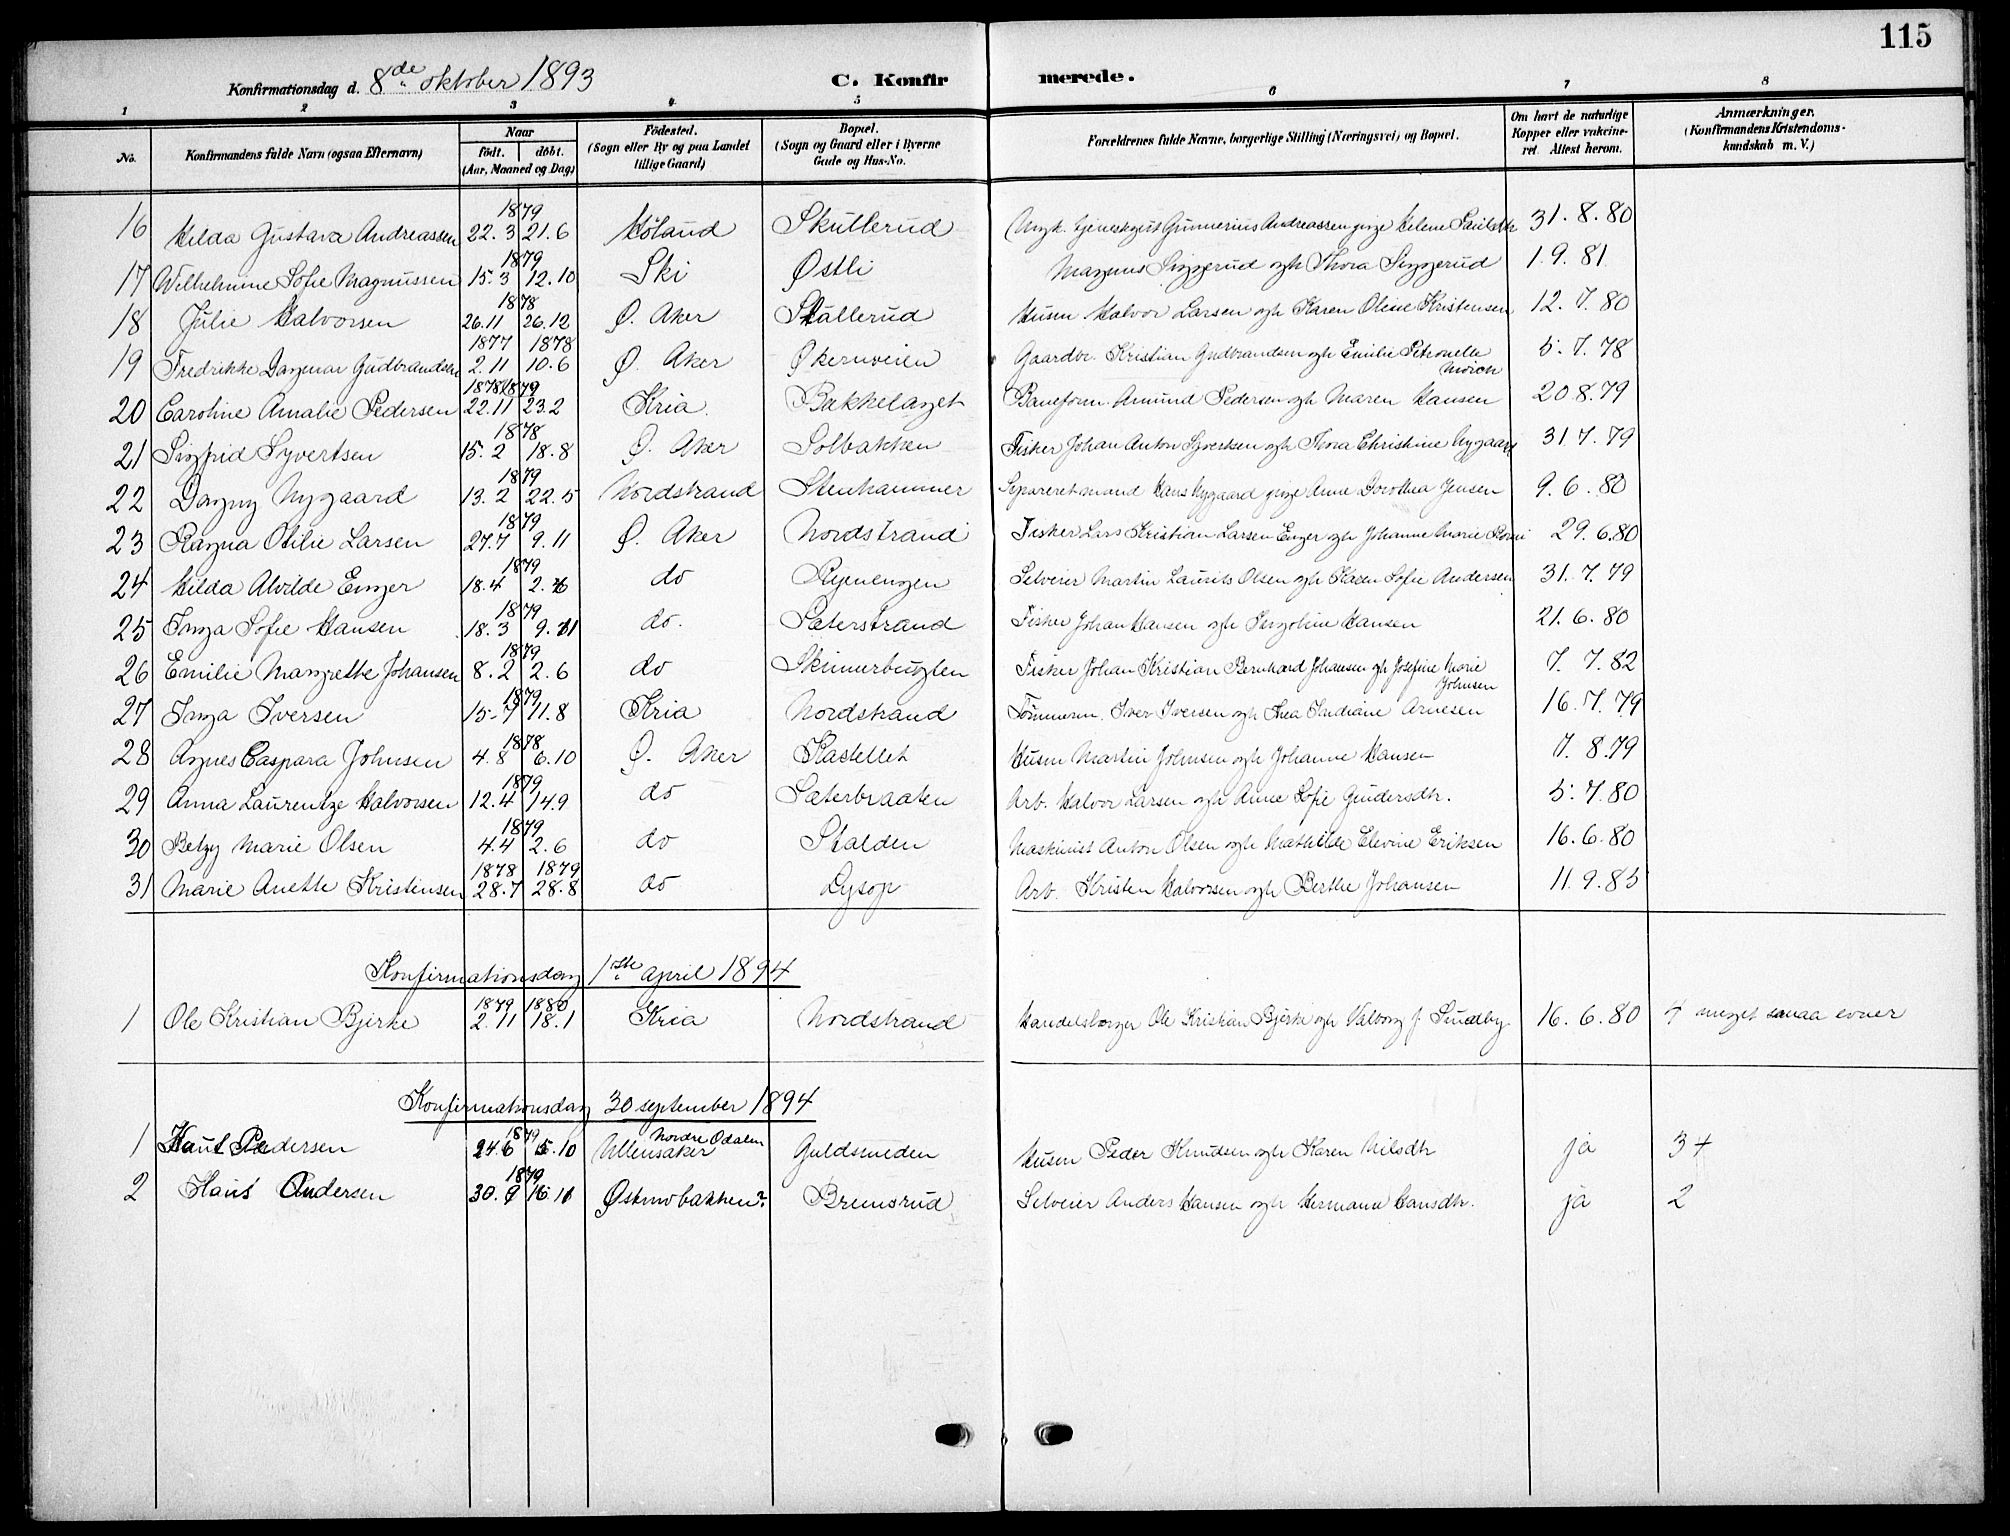 115
Konfirmationsdag d. 8de oktober 1893 C. Konfirmerede.
1 2 3 4 5 6 7 8
No. Konfirmandens fulde Navn (ogsaa Efternavn) Naar födt. döbt. (Aar, Maaned og Dag) Födested. (Sogn eller By og paa Landet tillige Gaard) Bopæl. (Sogn og Gaard eller i Byerne Gade og Hus-No. Forældrenes fulde Navne, borgerlige Stilling (Næringsvei) og Bopæl. Om havt de naturlige Kopper eller vakcineret. Attest herom. Anmærkninger. (Konfirmandens Kristendomskundskab m. V.)
1879
16 Hilda Gustava Andreassen 22.3 21.6 Höland Skullerud Gunnerius Andreassen pige Helene 31.8.80
1879
17 Wilhelmine Sofie Magnussen 15.3 12.10 Ski Østli Magnus Siggerud ogh Thora Siggerud 1.9.81
1878
18 Julie Halvorsen 26.11 26.12 Ø. Aker Skullerud Husm Halvor Larsen ogh Karen Oline Kristensen 12.7.80
1877 1878
19 Fredrikke Dagmar Gudbrandsen 2.11 10.6 Ø. Aker Økernveien Gaardbr. Kristian Gudbrandsen ogh Emilie Petronelle Mörch 5.7.78
1878 1879
20 Caroline Amalie Pedersen 22.11 23.2 Kria. Bakkelaget Baneform. Amund Pedersen ogh Maren Hansen 20.8.79
1878
21 Sigfrid Syvertsen 15.2 18.8 Ø. Aker Solbakken Fisker Johan Anton Syvertsen ogh Thora Christine Nygaard 31.7.79
1879
22 Dagny Nygaard 13.2 22.5 Nordstrand Stenhammer Separeret mand Hans Nygaard pige Anne Dorothea Jensen 9.6.80
1879
23 Ragna Otilie Larsen 27.7 9.11 Ø. Aker Nordstrand Fisker Lars Kristian Larsen Enger ogh Johanne Marie 29.6.80
1879
24 Hilda Alvilde Enger 18.4 2.6 do Ryenengen Selveier Martin Laurits Olsen ogh Karen Sofie Andersen 31.7.79
1879
25 Inga Sofie Hansen 18.3 9.11 do. Sæterstrand Fisker Johan Hansen ogh Ingoline Hansen 21.6.80
1879
26 Emilie Margrethe Johansen 8.2 2.6 do Skinnerbugten Fisker Johan Kristian Bernhard Johansen ogh Josefine Marie Johnsen 7.7.82
1879
27 Inga Iversen 15.7 11.8 Kria Nordstrand Tömmerm. Iver Iversen ogh Thea Indiane Arnesen 16.7.79
1878
28 Agnes Caspara Johnsen 4.8 6.10 Ø. Aker Kastellet Husm Martin Johnsen ogh Johanne Hansen 7.8.79
1879
29 Anna Laurentze Halvorsen 12.4 14.9 do Sæterbraaten Arb. Halvor Larsen ogh Anne Sofie Gundersdtr. 5.7.80
1879
30 Betzy Marie Olsen 4.4 2.6 do Stalden Maskinist Anton Olsen ogh Mathilde Elevine Eriksen 16.6.80
1878 1879
31 Marie Anette Kristensen 28.7 28.8 do Lysop Arb. Kristen Halvorsen ogh Berthe Johansen 11.9.85
Konfirmationsdag 1ste april 1894
1879 1880
1 Ole Kristian Bjerke 2.11 18.1 Kria Nordstrand Handelsborger Ole Kristian Bjerke ogh Valborg f. Sundby 16.6.80 4 meget smaa evner
Konfirmationsdag 30 september 1894
1879 Nordre Odalen
1 Knut Pedersen 24.6 5.10 Ullensaker Guldsmeden Husm Peder Knudsen ogh Karen Nilsdtr ja 3+
1879
2 Hans Andersen 30.9 16.11 Østmobakken? Bremsrud Selveier Anders Hansen ogh Hermane Hansdtr. ja 2